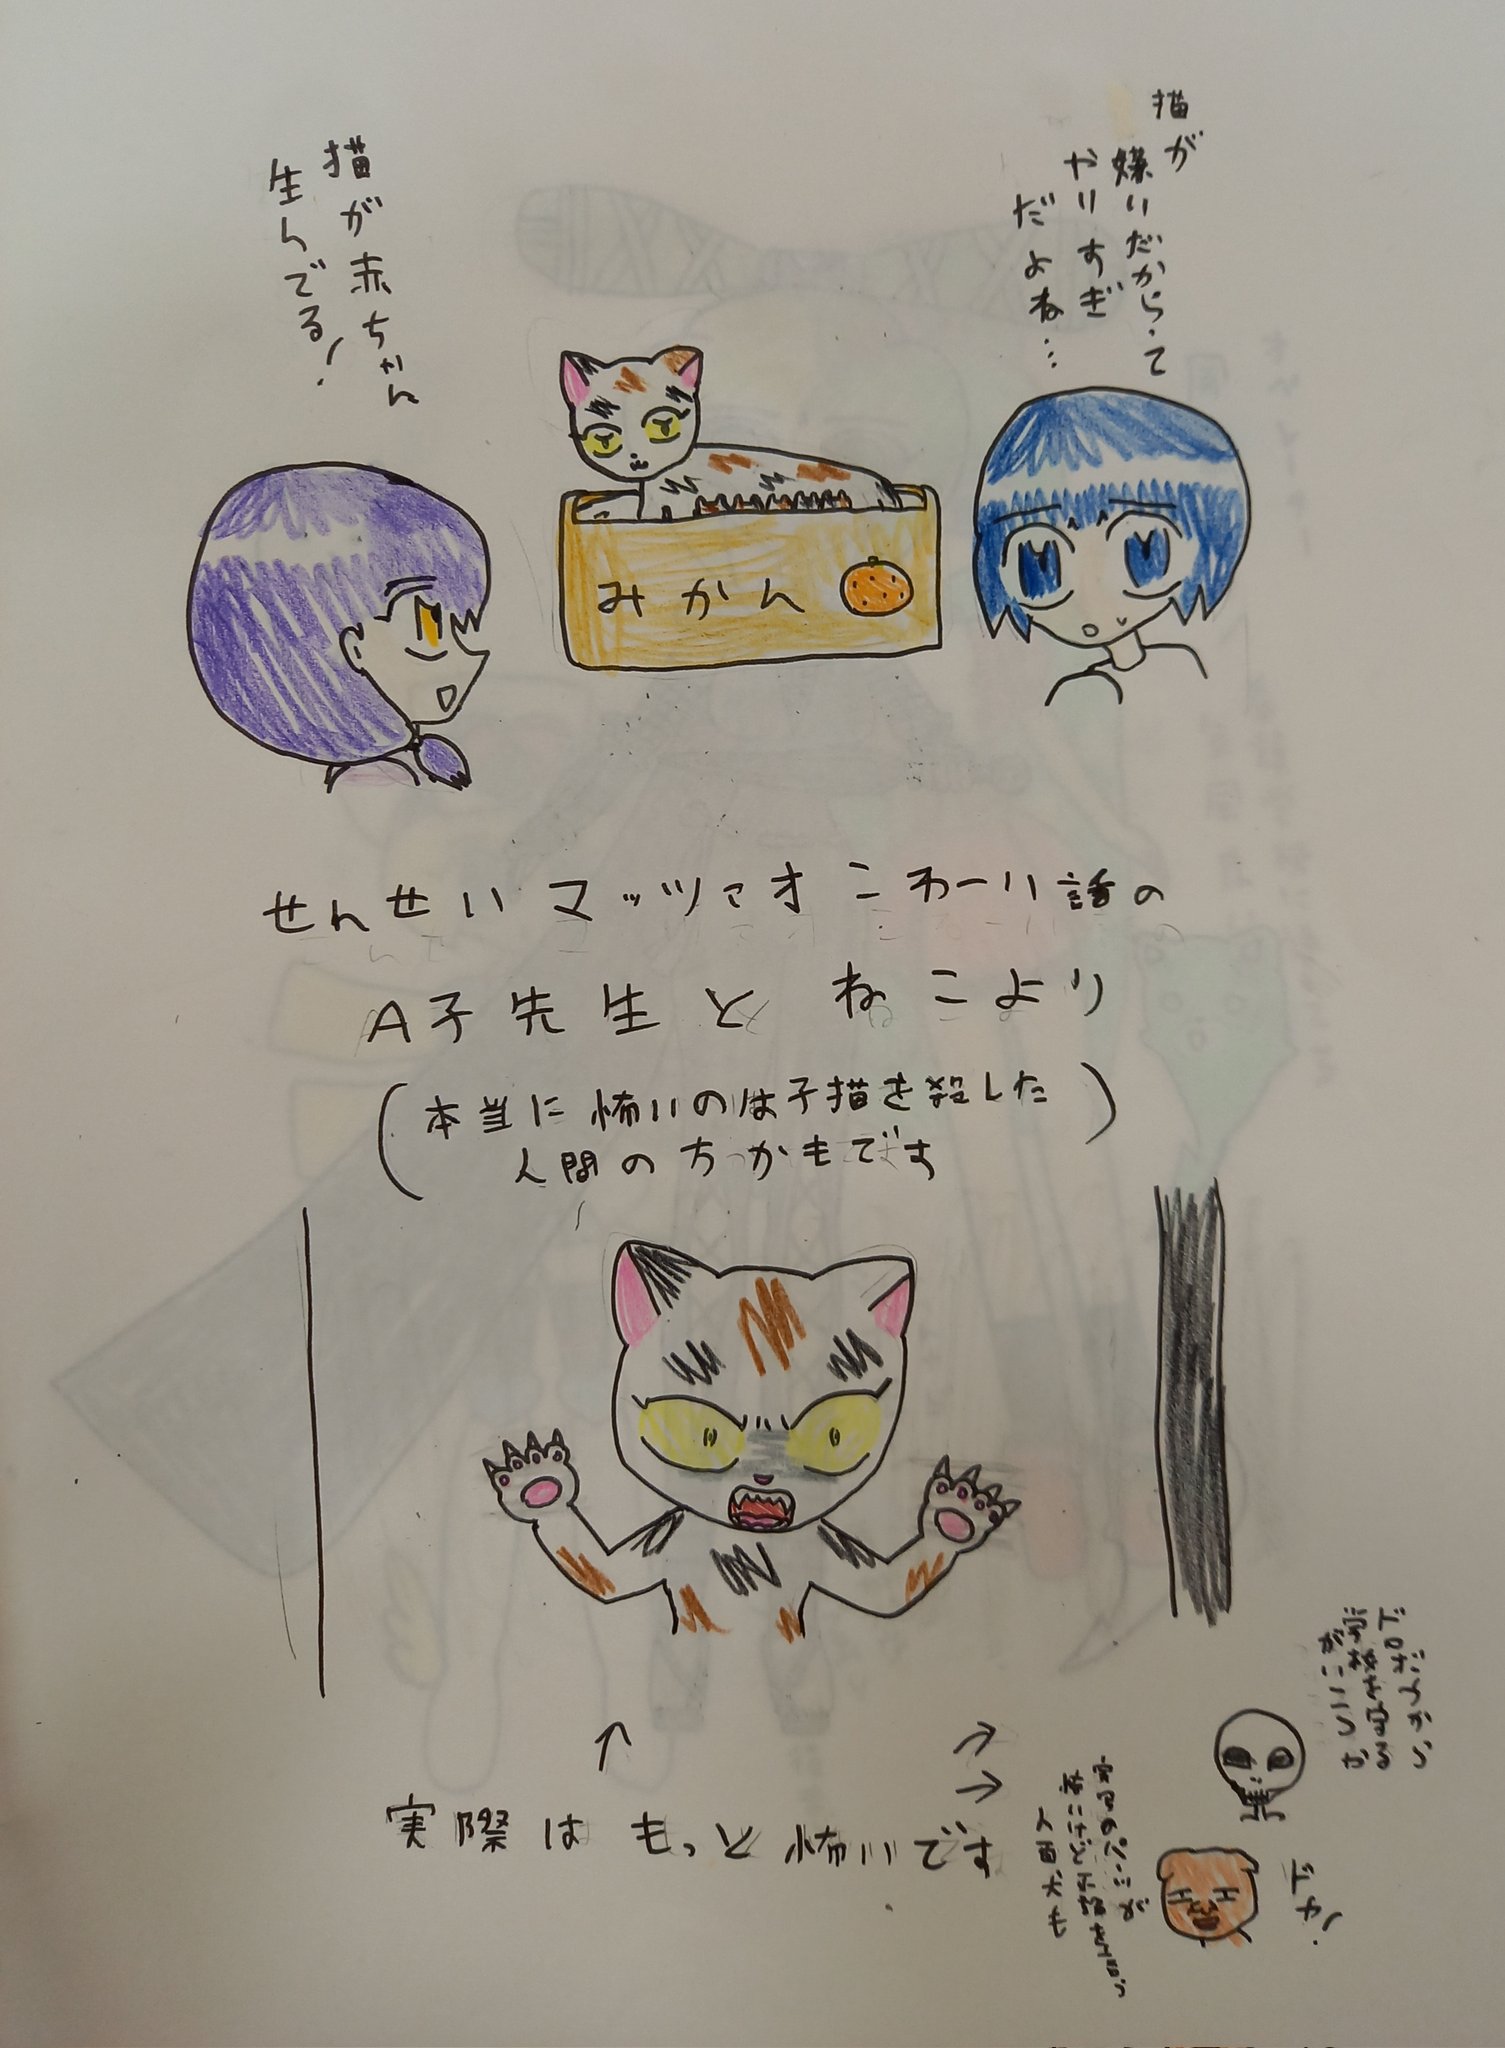 描が
嫌いだからって
やりすぎ
だよね…
描が赤ちゃん
生んでる!
みかん
せんせいマッツァオこわーい話の
A子先生とねこより
(本当に怖いのは子描を殺した
人間の方かもです)
↑
実際はもっと怖いです
ドロボウから
学校を守る
がいこつか
怖いけど
人面犬も
ドヤ!